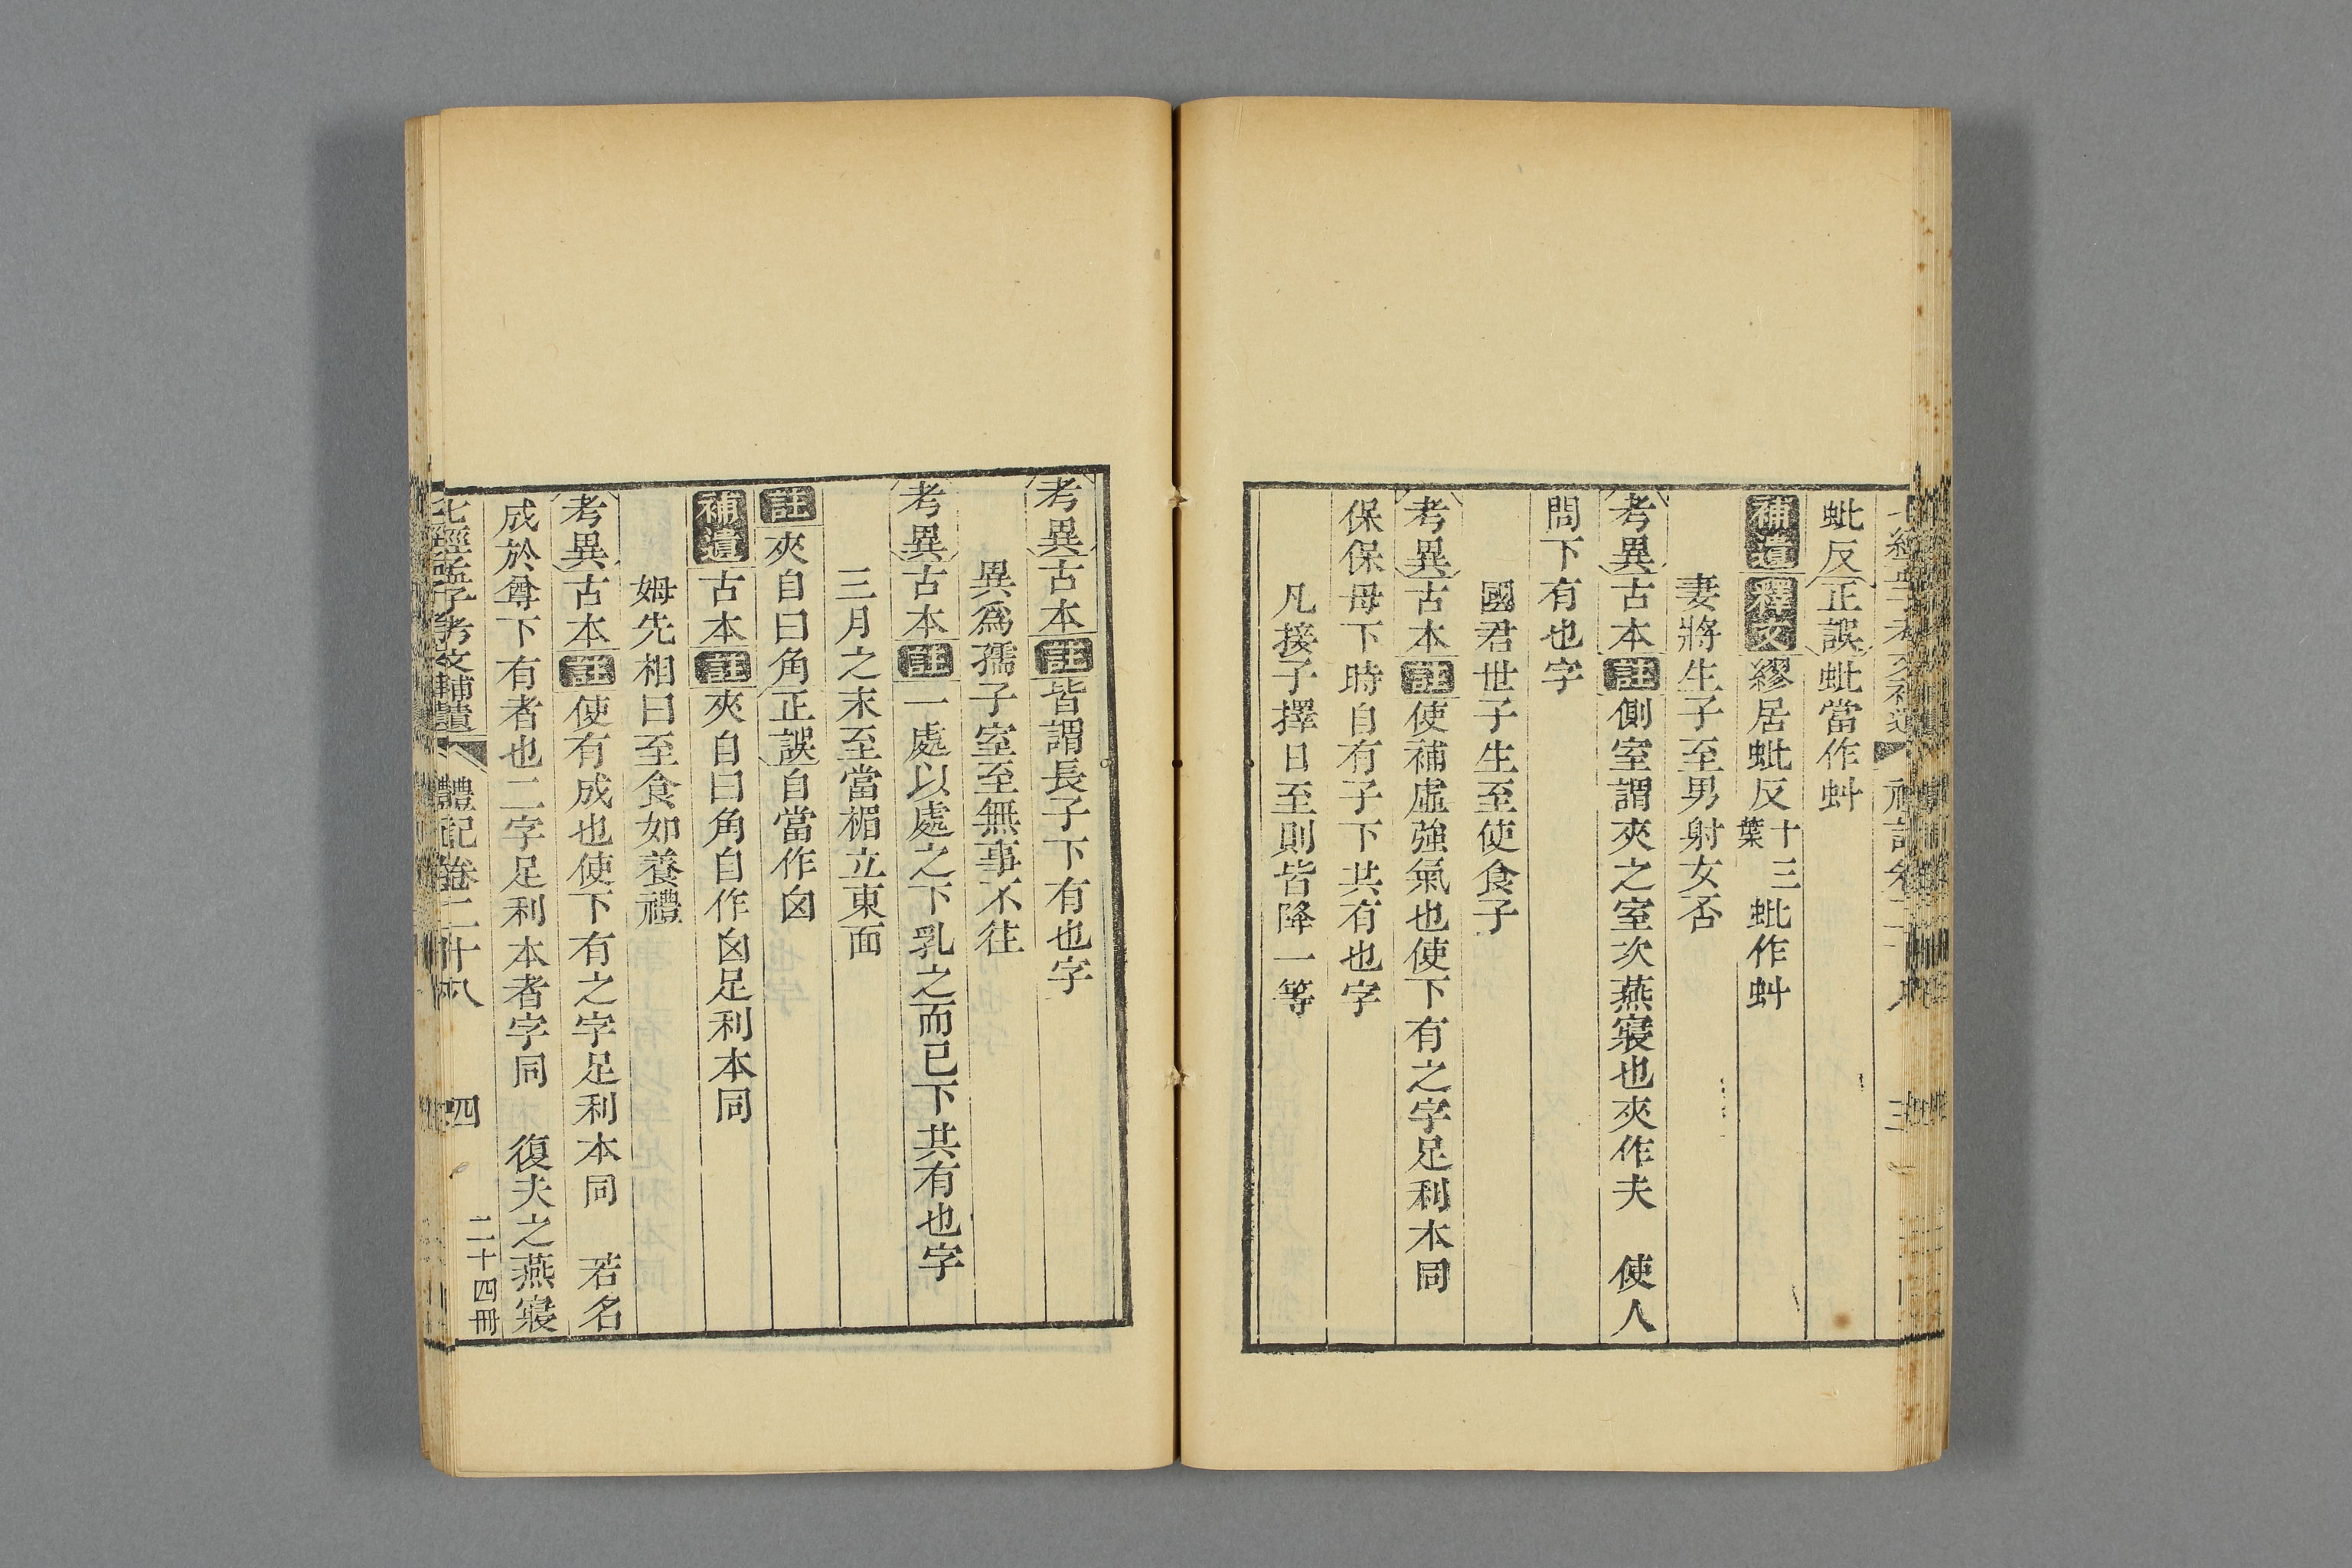 蚍反正誤蚍當作蚪
補遺釋文繆居蚍反十三葉蚍作蚪
妻將生子至男射女否
考異古本註側室謂夾之室次燕寢也夾作夫　使人
問下有也字
國君世子生至使食子
考異古本註使補虛強氣也使下有之字足利本同
保保母下時自有子下共有也字
凡接子擇日至則皆降一等
考異古本註皆謂長子下有也字
異爲孺子室至無事不往
考異古本註一處以處之下乳之而已下共有也字
三月之末至當楣立東面
註夾自曰角正誤自當作囟
補遺古本註夾自曰角自作囟足利本同
姆先相曰至食如養禮
考異古本註使有成也使下有之字足利本同　若名
成於尊下有者也二字足利本者字同　復夫之燕寢
七經孟子考文補遺　禮記卷二十八　四　二十四冊